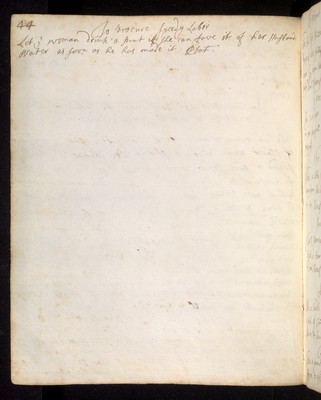 44
To Procure speedy Labor
Let ye woman drink a pint if she can have it of her Husband
Water as soon as he has made it